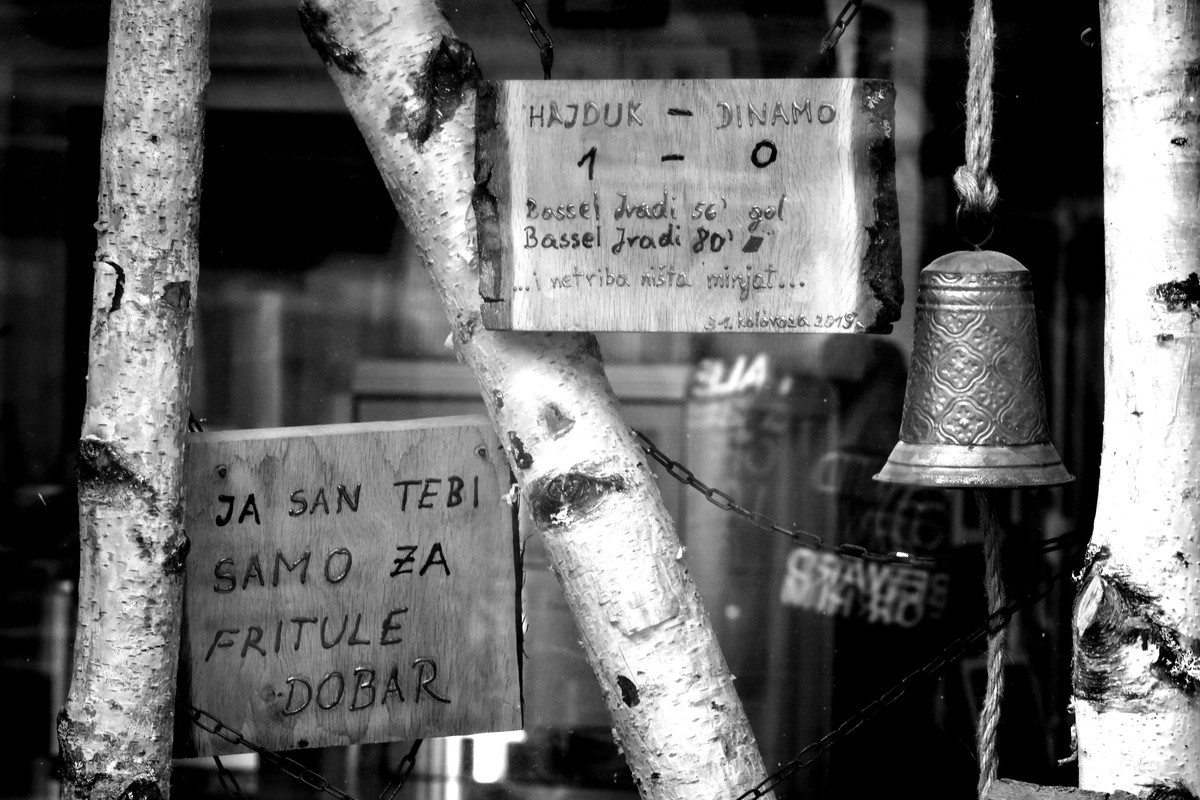 HAJDUK - DINAMO
1 - 0
Bassel Jradi 56' gol
Bassel Jradi 80'
...i netriba ništa minjat...
31. kolovoza 2019.
JA SAN TEBI
SAMO ZA
FRITULE
DOBAR